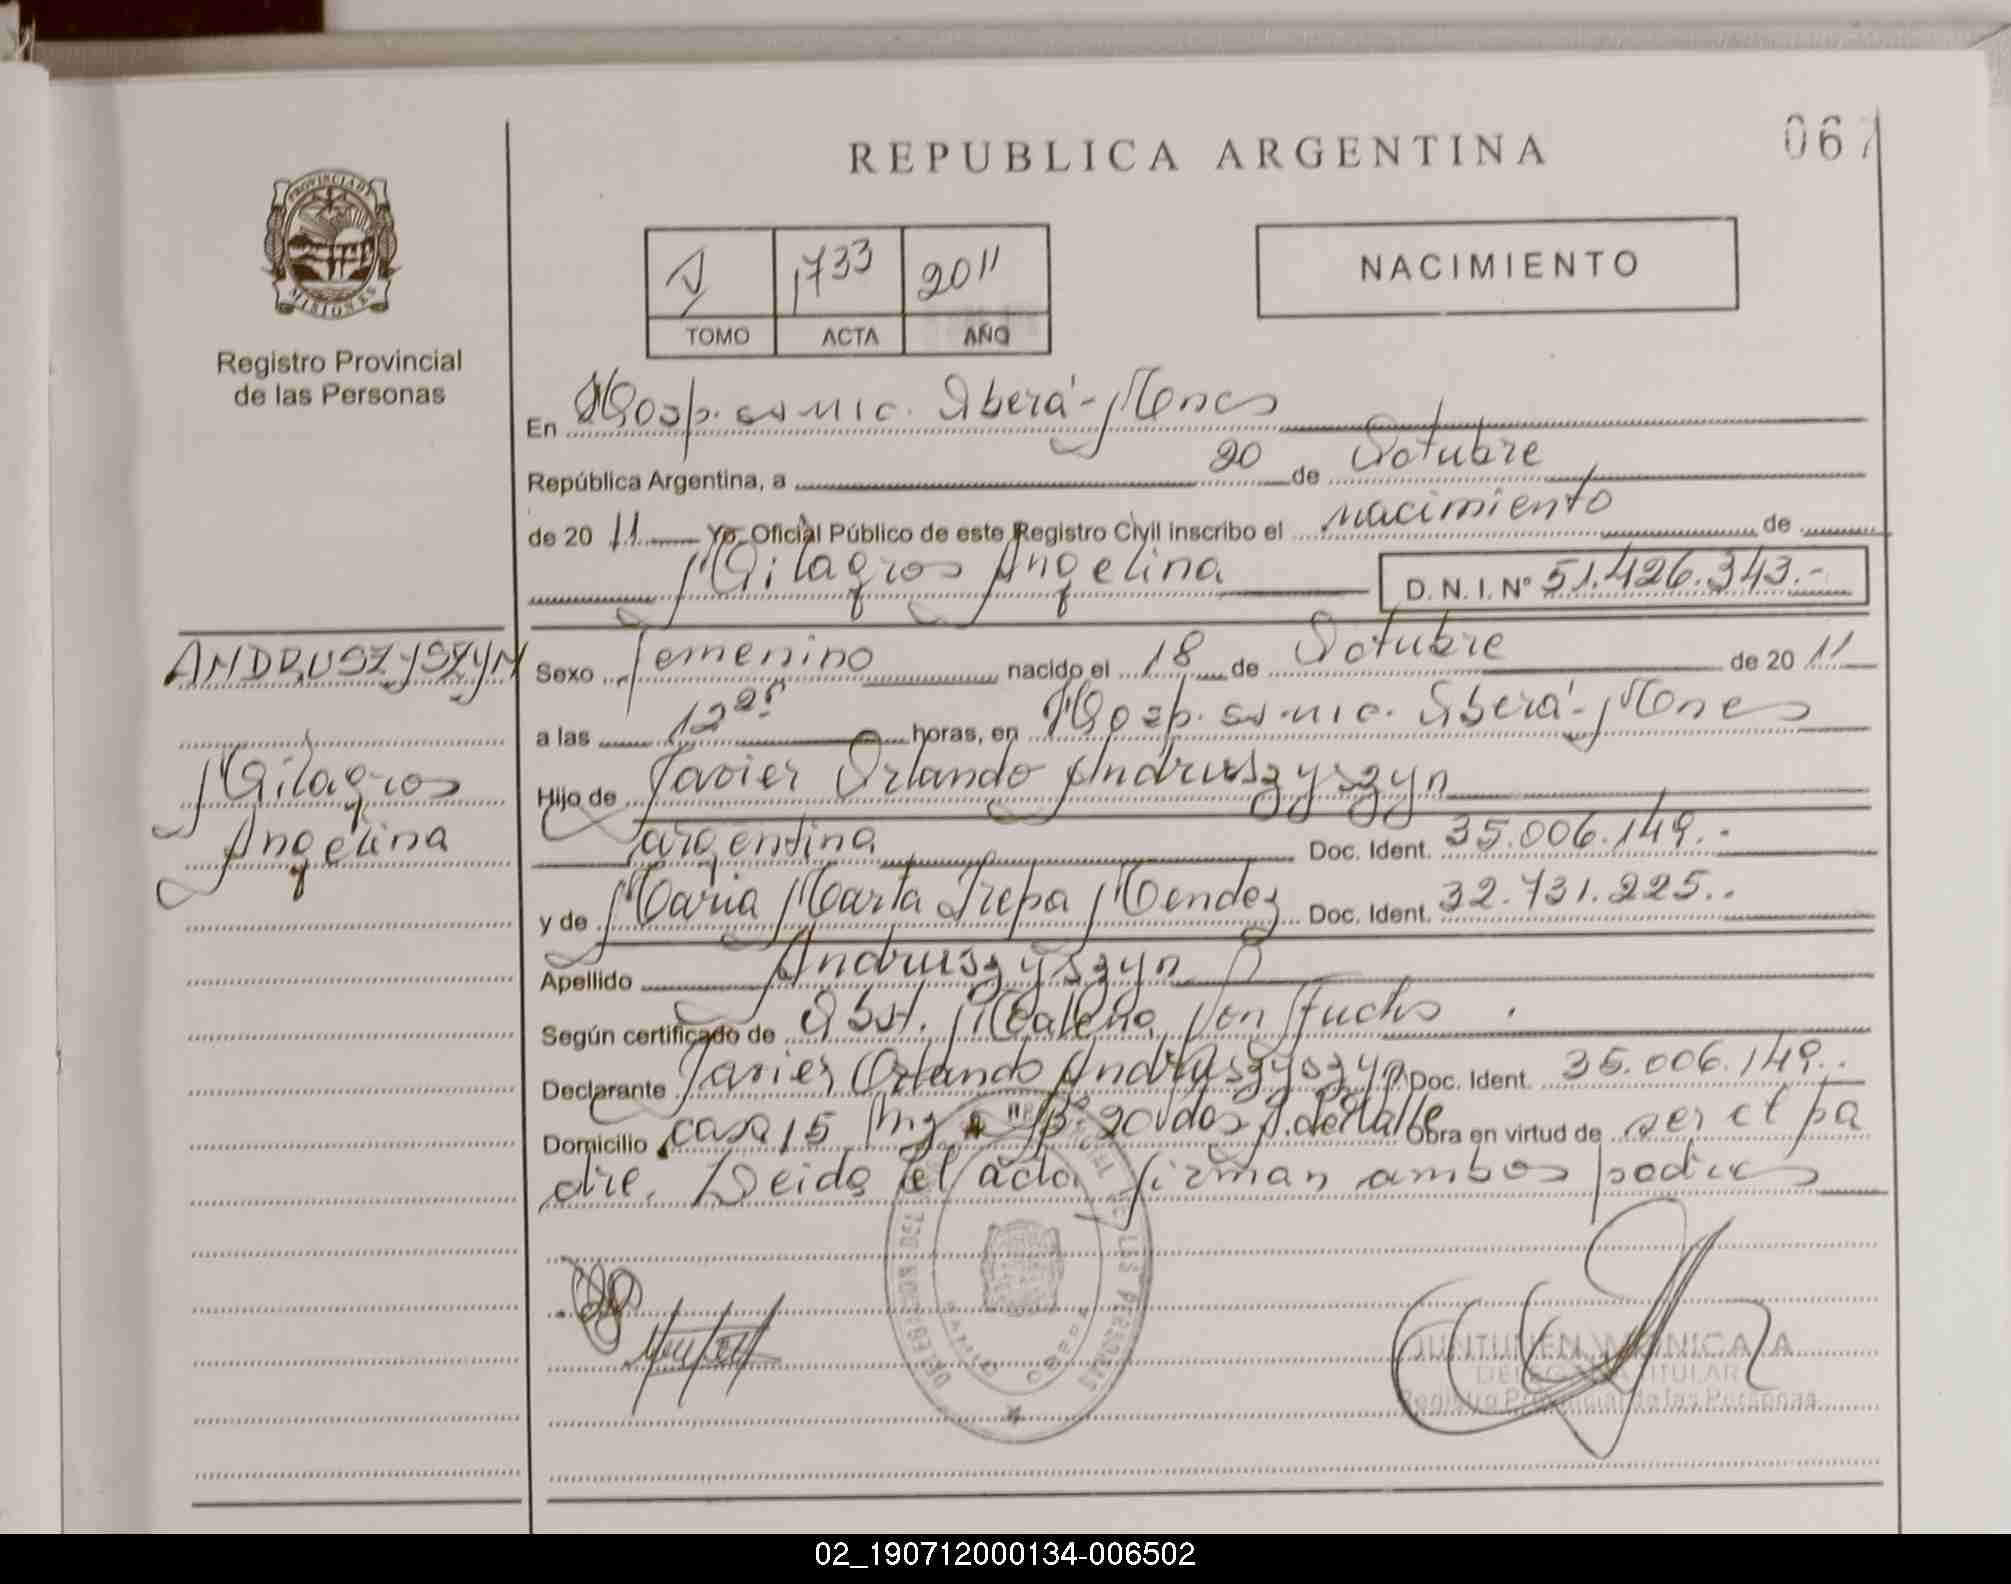 REPUBLICA ARGENTINA
067
PROVINCIA DE
MISIONES
Registro Provincial
de las Personas
1733 2011
TOMO ACTA AÑO
NACIMIENTO
En Hosp. Iberá - Mnes
República Argentina, a 20 de Octubre
de 20 11 Yo, Oficial Público de este Registro Civil inscribo el nacimiento de
Milagros Angelina D. N. I. N° 51.426.343.-
ANDRUSZYSZYN
Milagros
Angelina
Sexo femenino nacido el 18 de Octubre de 20 11
a las 12 horas, en Hosp. Iberá - Mnes
Hijo de Javier Orlando Andruszyszyn
argentina Doc. Ident. 35.006.149.-
y de Maria Marta Trepa Mendez Doc. Ident. 32.731.225..
Apellido Andruszyszyn
Según certificado de Obst. Von Fuchs
Declarante Javier Orlando Andruszyszyn Doc. Ident. 35.006.149..
Domicilio casa 15 Mz Obra en virtud de ser el pa
dre. Leida el acta, firman ambos padres
DE LAS PERSONAS
JUNTUNEN MONICA A
DELEGADA TITULAR
Registro Provincial de las Personas
02_190712000134-006502